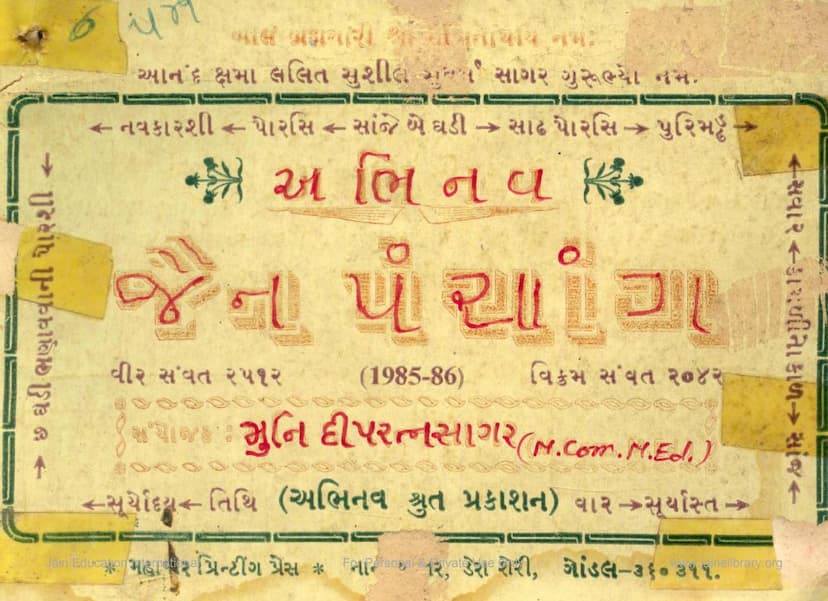 ૬ પમ
બાલ બ્રહ્મચારી શ્રી નેમિનાથાય નમઃ
આનંદ ક્ષમા લલિત સુશીલ સુધર્મ સાગર ગુરૂભ્યો નમઃ
← નવકારશી ← પોરસિ ← સાંજે બે ઘડી → સાઢ પોરસિ → પુરિમઢ્ઢ →
અભિનવ
જૈન પંચાંગ
વીર સંવત ૨૫૧૨ (1985-86) વિક્રમ સંવત ૨૦૪૨
સંયોજક : મુનિ દીપરત્નસાગર (M.Com. M.Ed.)
← સૂર્યોદય ← તિથિ (અભિનવ શ્રુત પ્રકાશન) વાર → સૂર્યાસ્ત →
← છ ઘડી ભણાવવાની પોરશી →
← સવાર ← કામળીનો કાળ → સાંજ ←
* મહાવીર પ્રિન્ટીંગ પ્રેસ * ડેરા શેરી, ગોંડલ–૩૬૦૩૧૧.
Jain Education International For Personal & Private Use Only www.jainelibrary.org